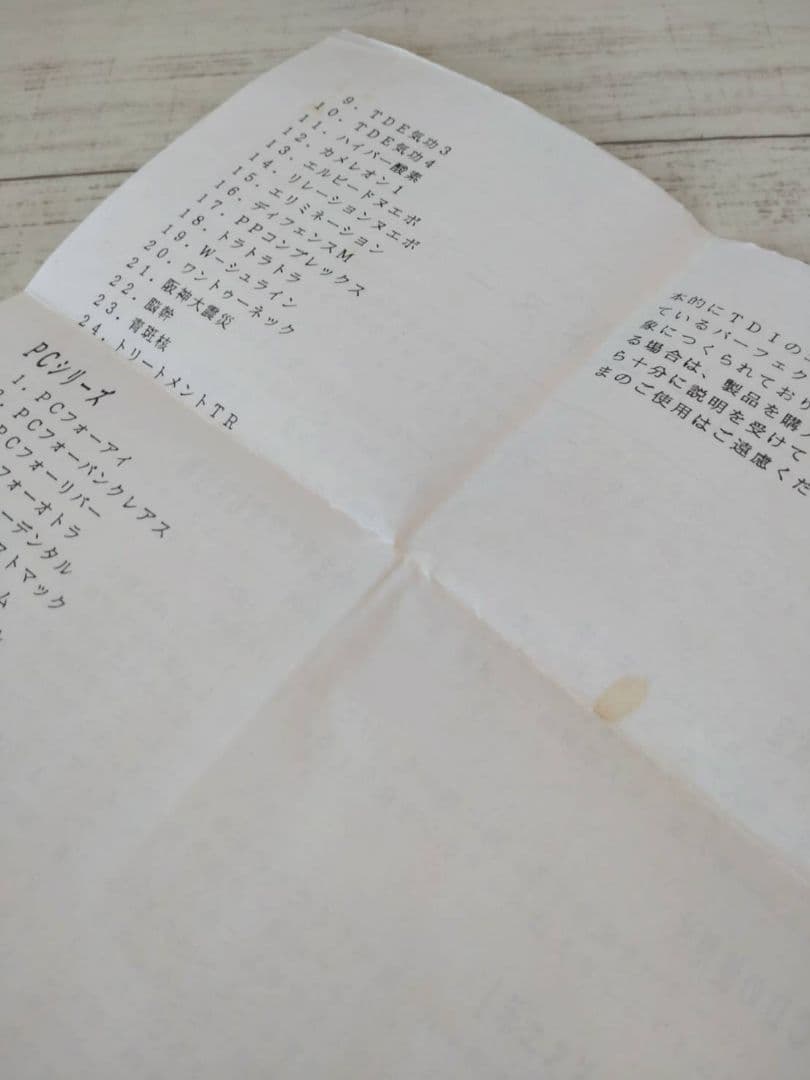 9．TDE気功3
10．TDE気功4
11．ハイパー酸素
12．カメレオン1
13．エルビードヌエボ
14．リレーションヌエボ
15．エリミネーション
16．ディフェンスM
17．PPコンプレックス
18．トラトラトラ
19．W－シュライン
20．ワントゥーネック
21．阪神大震災
22．脳幹
23．青斑核
24．トリートメントTR
PCシリーズ
1．PCフォーアイ
2．PCフォーパンクレアス
PCフォーリバー
フォーオトラ
ーデンタル
ストマック
ム
本的にTDIの
ているパーフェク
家につくられており
る場合は、製品を購入
ら十分に説明を受けて
まのご使用はご遠慮くだ